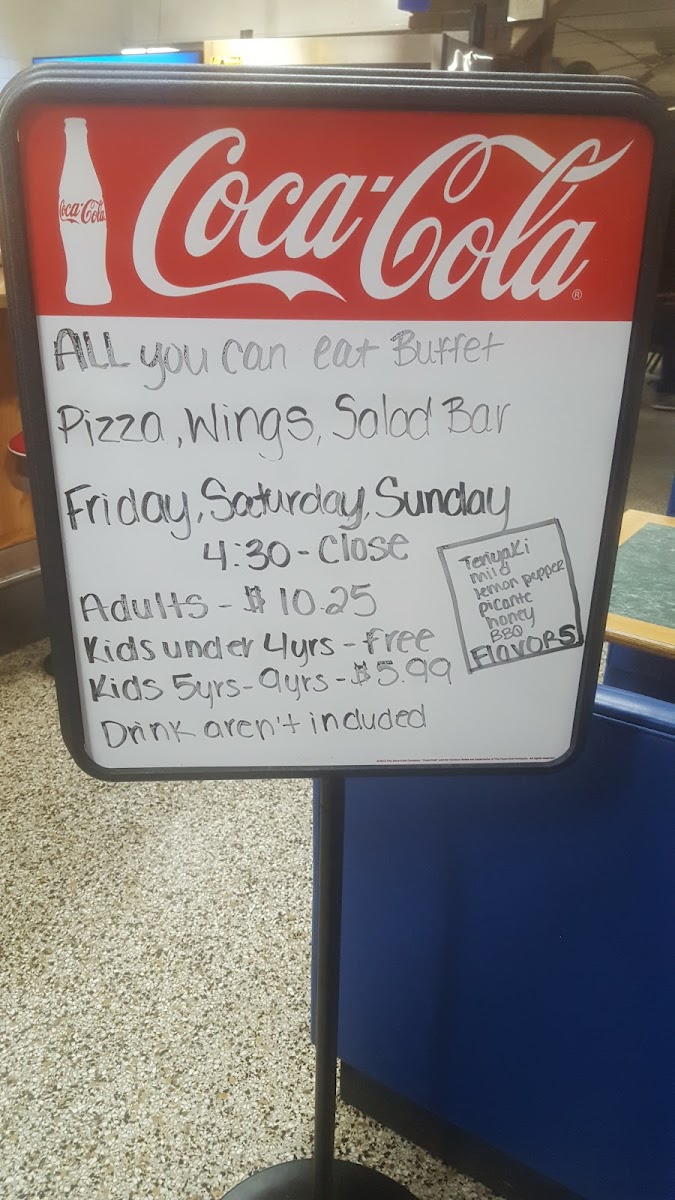 Coca-Cola
Coca-Cola®
ALL you can eat Buffet
Pizza, Wings, Salad Bar
Friday, Saturday, Sunday
4:30 - Close
Adults - $10.25
Kids under 4yrs - free
Kids 5yrs - 9yrs - $5.99
Drink aren't included
Teriyaki
mild
lemon pepper
picante
honey
BBQ
FLavorS